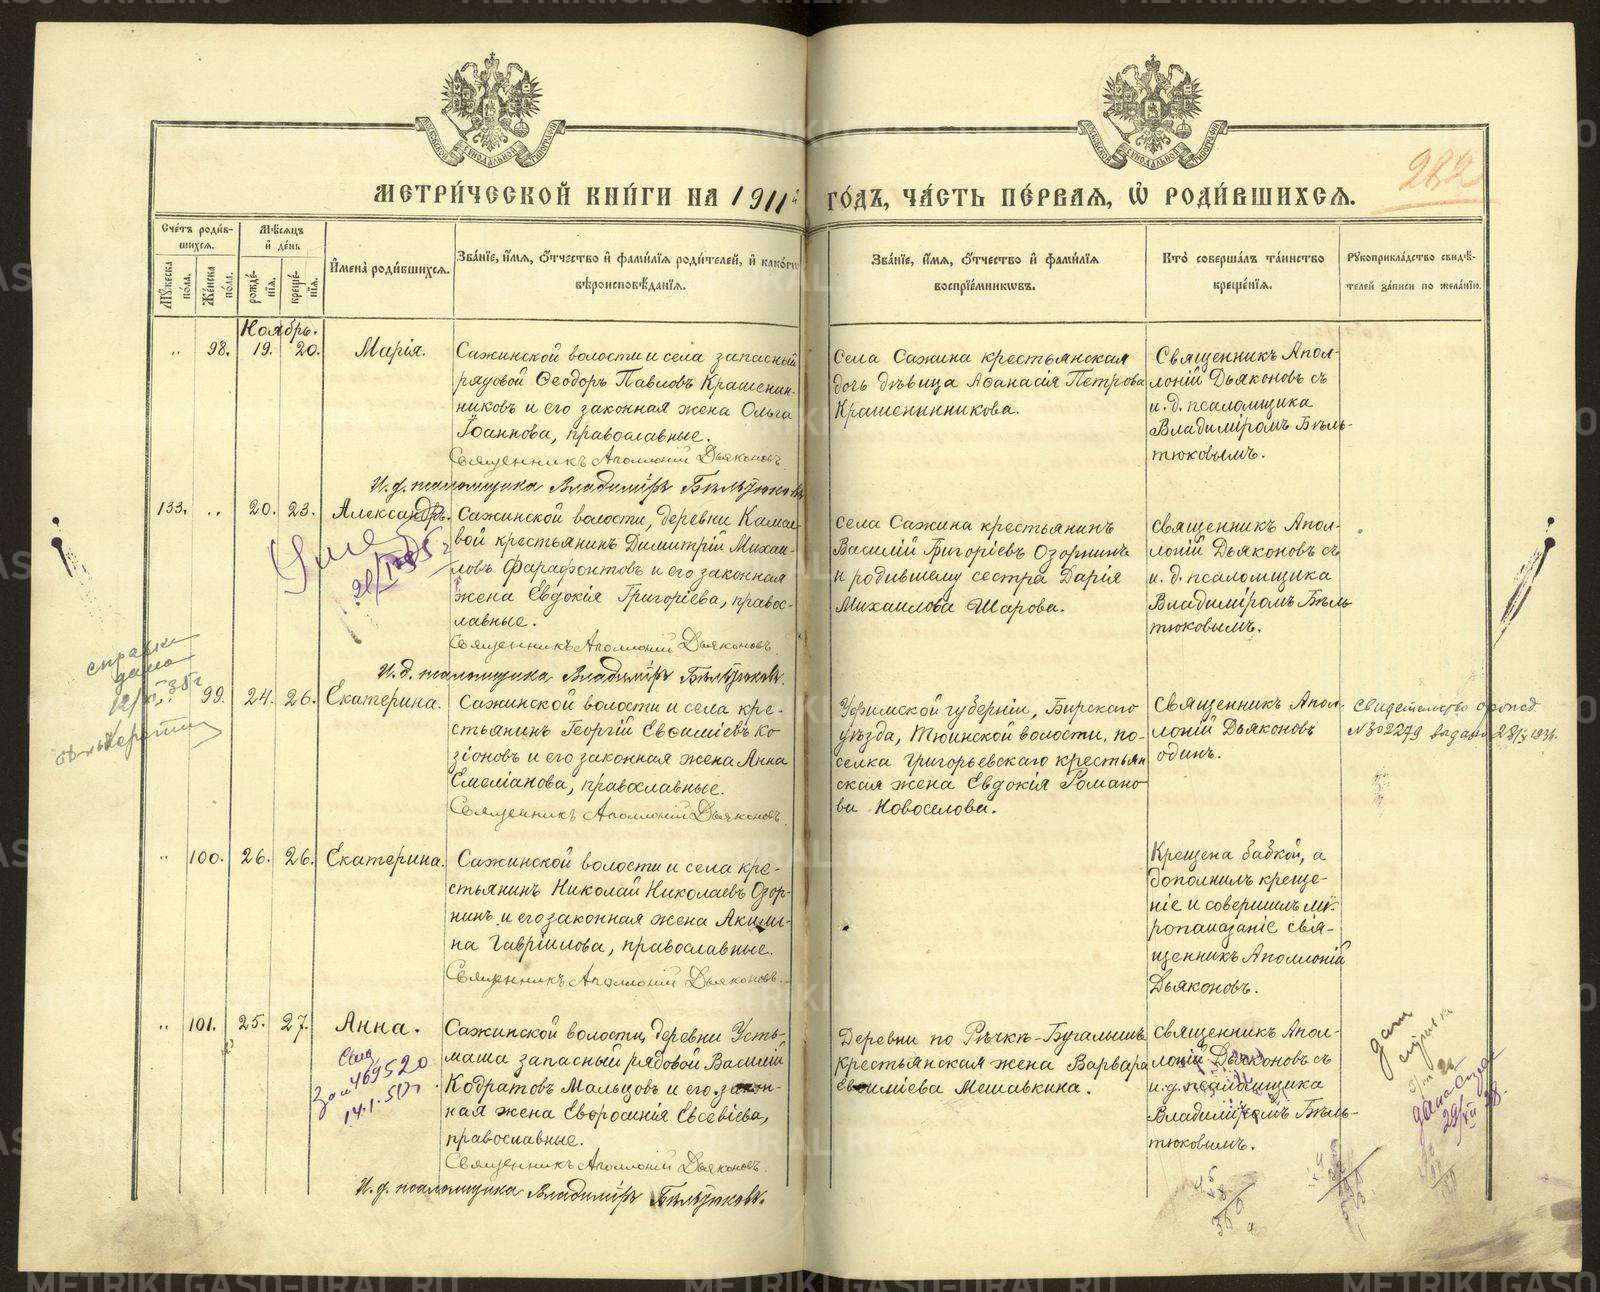 МЕТРИ́ЧЕСКОЙ КНИ́ГИ НА 1911й ГО́ДЪ, ЧА́СТЬ ПЕ́РВАЯ, Ѽ РОДИ́ВШИХСЯ.
282
Сче́тъ роди́в-
шихся.
Мꙋ́жеска по́ла.
Же́нска по́ла.
Мѣ́сяцъ
и҆ де́нь
рожде́-
нїя.
креще́-
нїя.
И҆мена̀ роди́вшихся.
Зва́нїе, и҆́мя, ѻ҆́тчество и҆ фами́лїя роди́телей, и҆ како́гѡ
вѣроисповѣ́данїя.
Зва́нїе, и҆́мя, ѻ҆́тчество и҆ фами́лїя
воспрїе́мникѡвъ.
Кто̀ соверша́лъ та́инство
креще́нїя.
Рꙋкоприкла́дство свидѣ́-
телей за́писи по жела́нїю.
Ноябрь.
" 98. 19. 20. Марія.
Сажинской волости и села запасный
рядовой Ѳеодоръ Павловъ Крашенин-
никовъ и его законная жена Ольга
Іоаннова, православные.
Священникъ Аполлоній Дьяконовъ
И. д. псаломщика Владиміръ Бѣльтюковъ
Села Сажина крестьянская
дочь дѣвица Аѳанасія Петрова
Крашенинникова.
Священникъ Апол-
лоній Дьяконовъ съ
и. д. псаломщика
Владиміромъ Бѣль-
тюковымъ.
133. " 20. 23. Александръ.
Умер
Сажинской волости, деревни Камае-
вой крестьянинъ Димитрій Михаи-
ловъ Фарафонтовъ и его законная
жена Евдокія Григоріева, правос-
лавные.
Священникъ Аполлоній Дьяконовъ.
И. д. псаломщика Владиміръ Бѣльтюковъ.
Села Сажина крестьянинъ
Василій Григоріевъ Озорнинъ
и родившему сестра Дарія
Михаилова Шарова.
Священникъ Апол-
лоній Дьяконовъ съ
и. д. псаломщика
Владиміромъ Бѣль-
тюковымъ.
справка
дана
" 99. 24. 26. Екатерина.
Сажинской волости и села кре-
стьянинъ Георгій Евѳиміевъ Ко-
зіоновъ и его законная жена Анна
Емеліанова, православные.
Священникъ Аполлоній Дьяконовъ.
Уфимской губерніи, Бирскаго
уѣзда, Тюинской волости, по-
селка Григорьевскаго крестьян
ская жена Евдокія Романо-
ва Новоселова.
Священникъ Апол-
лоній Дьяконовъ
одинъ.
Свидетельство о рожд
№302279 выдано
" 100. 26. 26. Екатерина.
Сажинской волости и села кре-
стьянинъ Николай Николаевъ Озор-
нинъ и его законная жена Акили-
на Гавріилова, православные.
Священникъ Аполлоній Дьяконовъ.
Крещена бабкой, а
дополнилъ креще-
ніе и совершилъ мѵ-
ропомазаніе свя-
щенникъ Аполлоній
Дьяконовъ.
" 101. 25. 27. Анна.
469520
14.1.
Сажинской волости, деревни Усть-
маша запасный рядовой Василій
Кодратовъ Мальцовъ и его закон-
ная жена Евфросинія Евсевіева,
православные.
Священникъ Аполлоній Дьяконовъ.
И. д. псаломщика Владиміръ Бѣльтюковъ.
Деревни по Рѣчкѣ-Бугалышъ
крестьянская жена Варвара
Евѳиміева Мешавкина.
Священникъ Апол-
лоній Дьяконовъ съ
и. д. псаломщика
Владиміромъ Бѣль-
тюковымъ.
METRIKI.GASO-URAL.RU